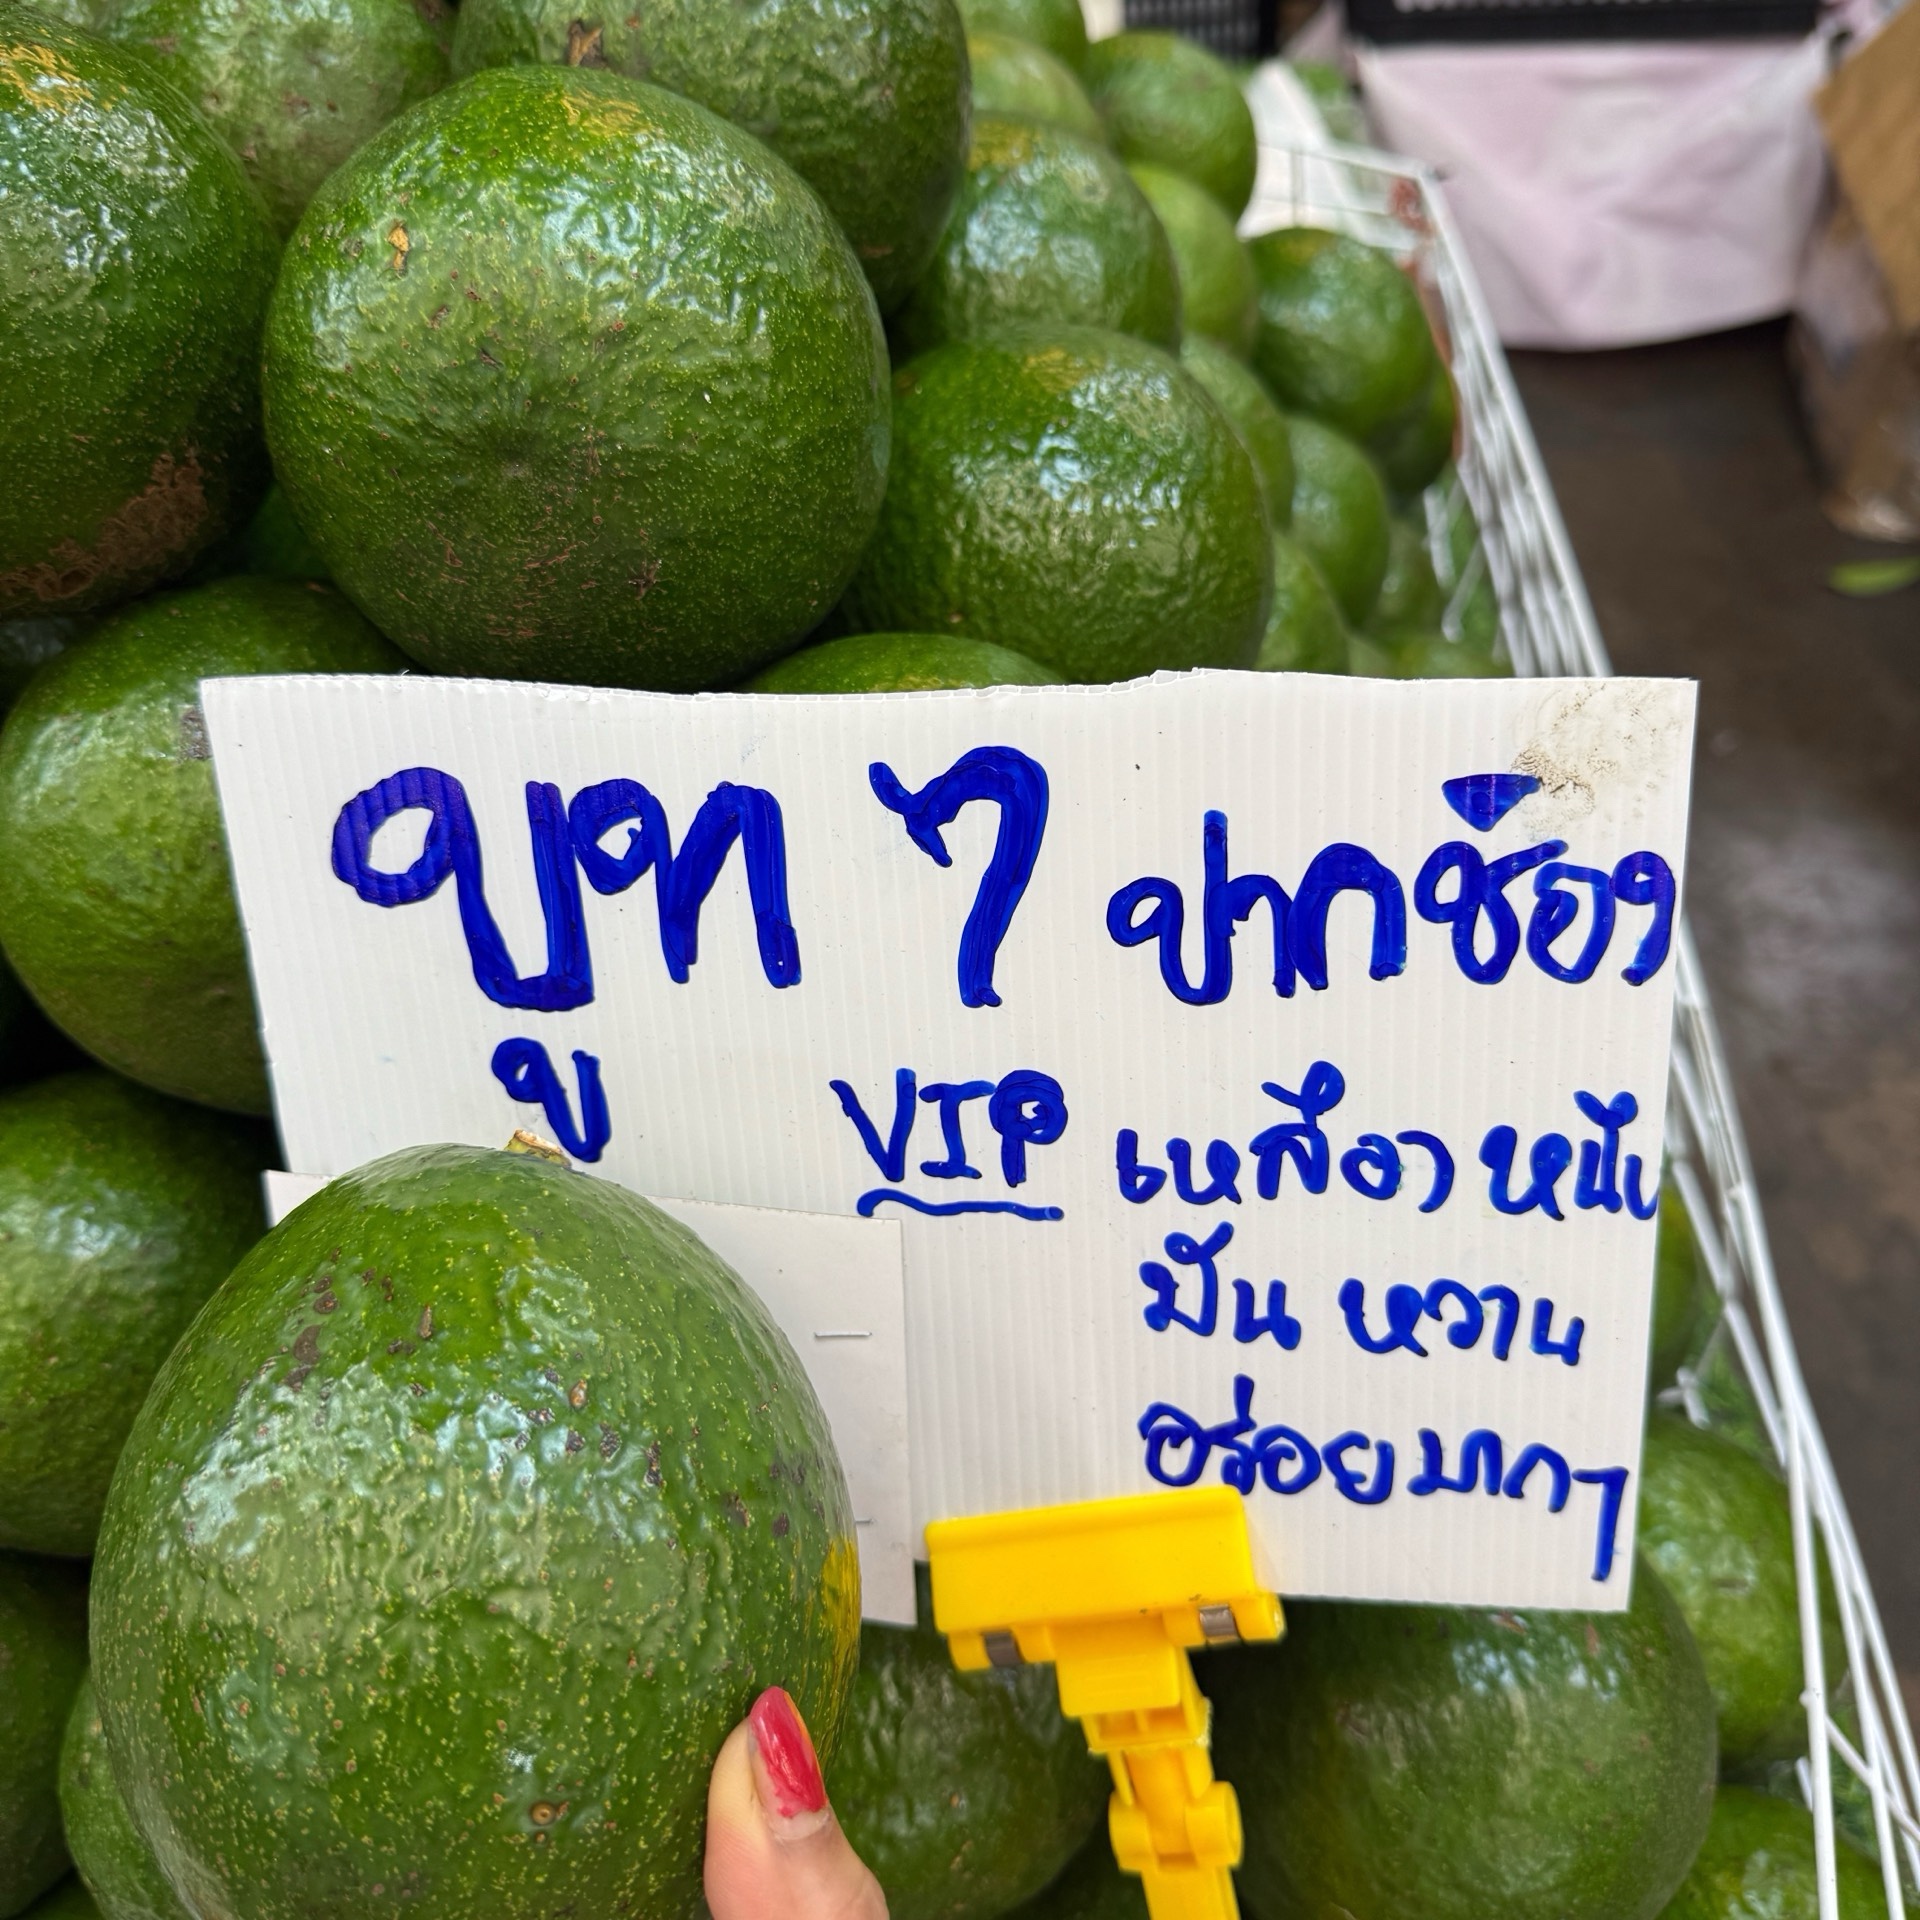 บูท 7 ปากช่อง
VIP เหลือง หนึบ
มัน หวาน
อร่อยมากๆ